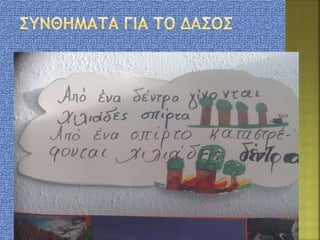 ΣΥΝΘΗΜΑΤΑ ΓΙΑ ΤΟ ΔΑΣΟΣ
Από ένα δέντρο γίνονται
χιλιάδες σπίρτα
Από ένα σπίρτο καταστρέ-
φονται χιλιάδες δέντρα